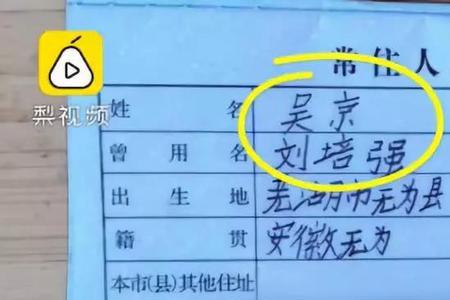 梨视频
常住人
姓名 吴京
曾用名 刘培强
出生地 芜湖市无为县
籍贯 安徽无为
本市(县)其他住址